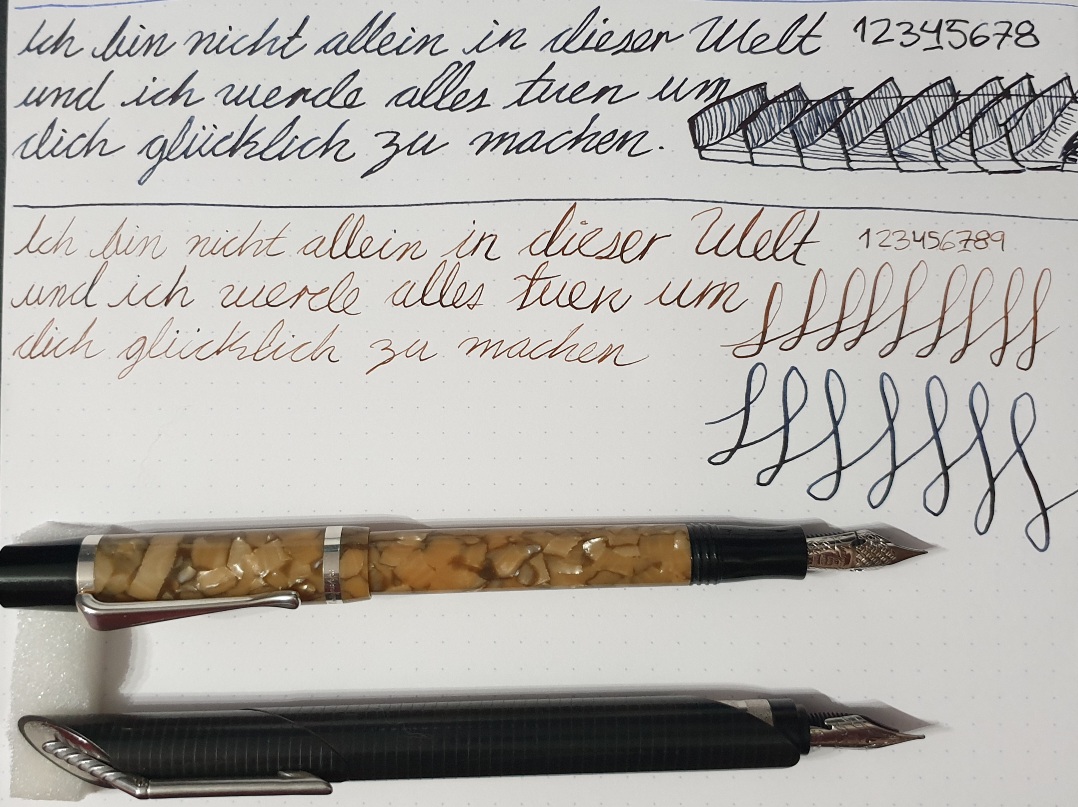 Ich bin nicht allein in dieser Welt 12345678
und ich werde alles tuen um
dich glücklich zu machen.
Ich bin nicht allein in dieser Welt 123456789
und ich werde alles tuen um
dich glücklich zu machen